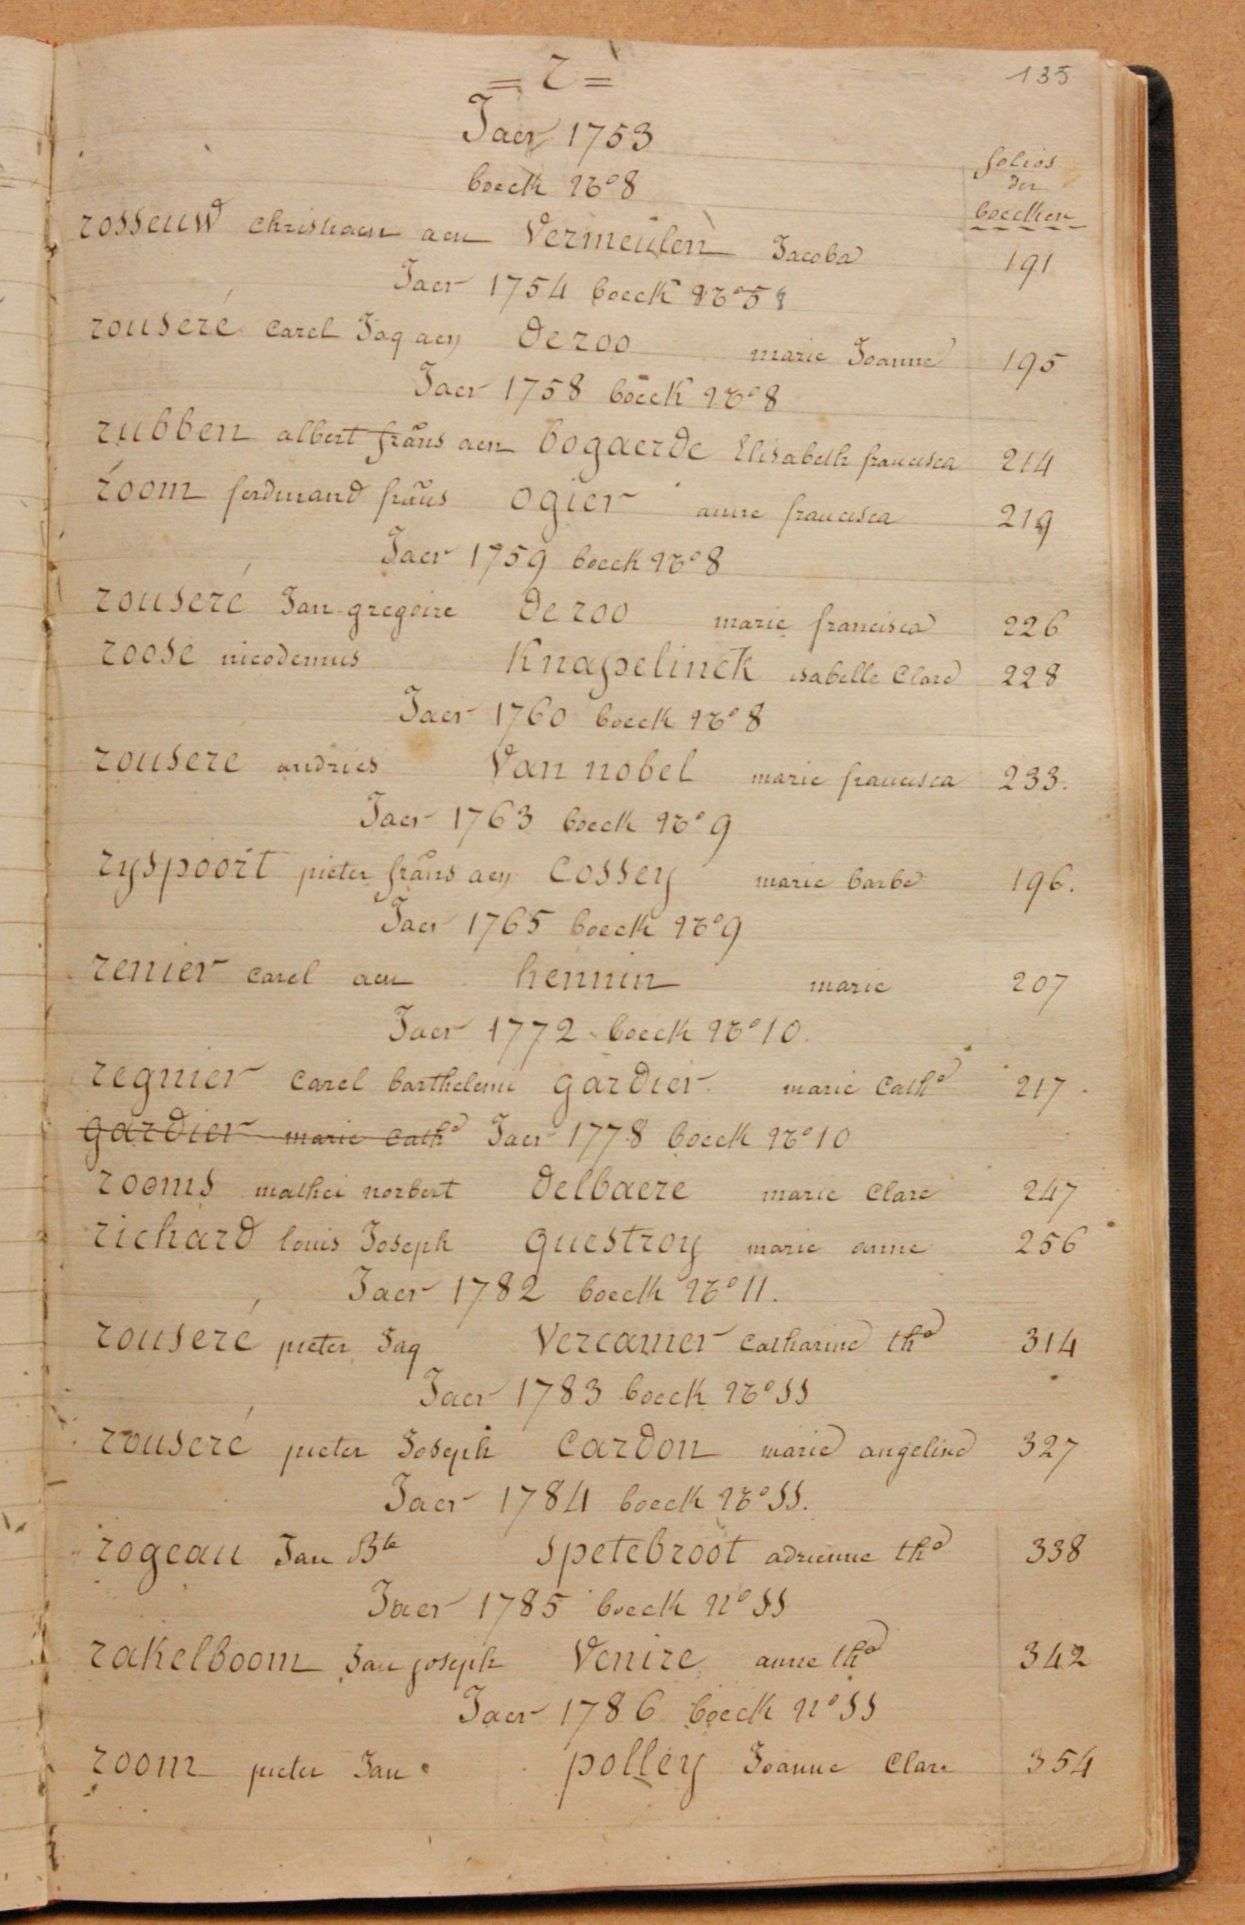 = r =
135
Jaer 1753
boeck No 8
folios
der
boecken
rosseuw christiaen aen Vermeulen Jacoba 191
Jaer 1754 boeck No
rouseré Carel Jaq aen de roo marie Joanne 195
Jaer 1758 boeck No 8
rubben albert frans aen bogaerde Elisabeth francisca 214
room ferdinand frans ogier anne francisca 219
Jaer 1759 boeck No 8
rouseré Jan gregoire de roo marie francisca 226
roose nicodemus Knapelinck isabelle Clare 228
Jaer 1760 boeck No 8
rousere andries Van nobel marie francisca 233.
Jaer 1763 boeck No 9
ryspoort pieter frans aen Cossey marie barbe 196.
Jaer 1765 boeck No 9
renier Carel aen hennin marie 207
Jaer 1772 boeck No 10.
regnier Carel barthelemi gardier marie Cath^e 217
gardier marie Cath^e Jaer 1778 boeck No 10
rooms mathei norbert delbaere marie Clare 247
richard louis Joseph questroy marie anne 256
Jaer 1782 boeck No 11.
rouseré pieter Jaq Vercamer Catharine th^e 314
Jaer 1783 boeck No 11
rouseré pieter Joseph Cardon marie angeline 327
Jaer 1784 boeck No 11.
rogeau Jan Bte spetebroot adrienne th^e 338
Jaer 1785 boeck No 11
rakelboom Jan joseph Venire anne th^e 342
Jaer 1786 boeck No 11
room pieter Jan polley Joanne Clare 354